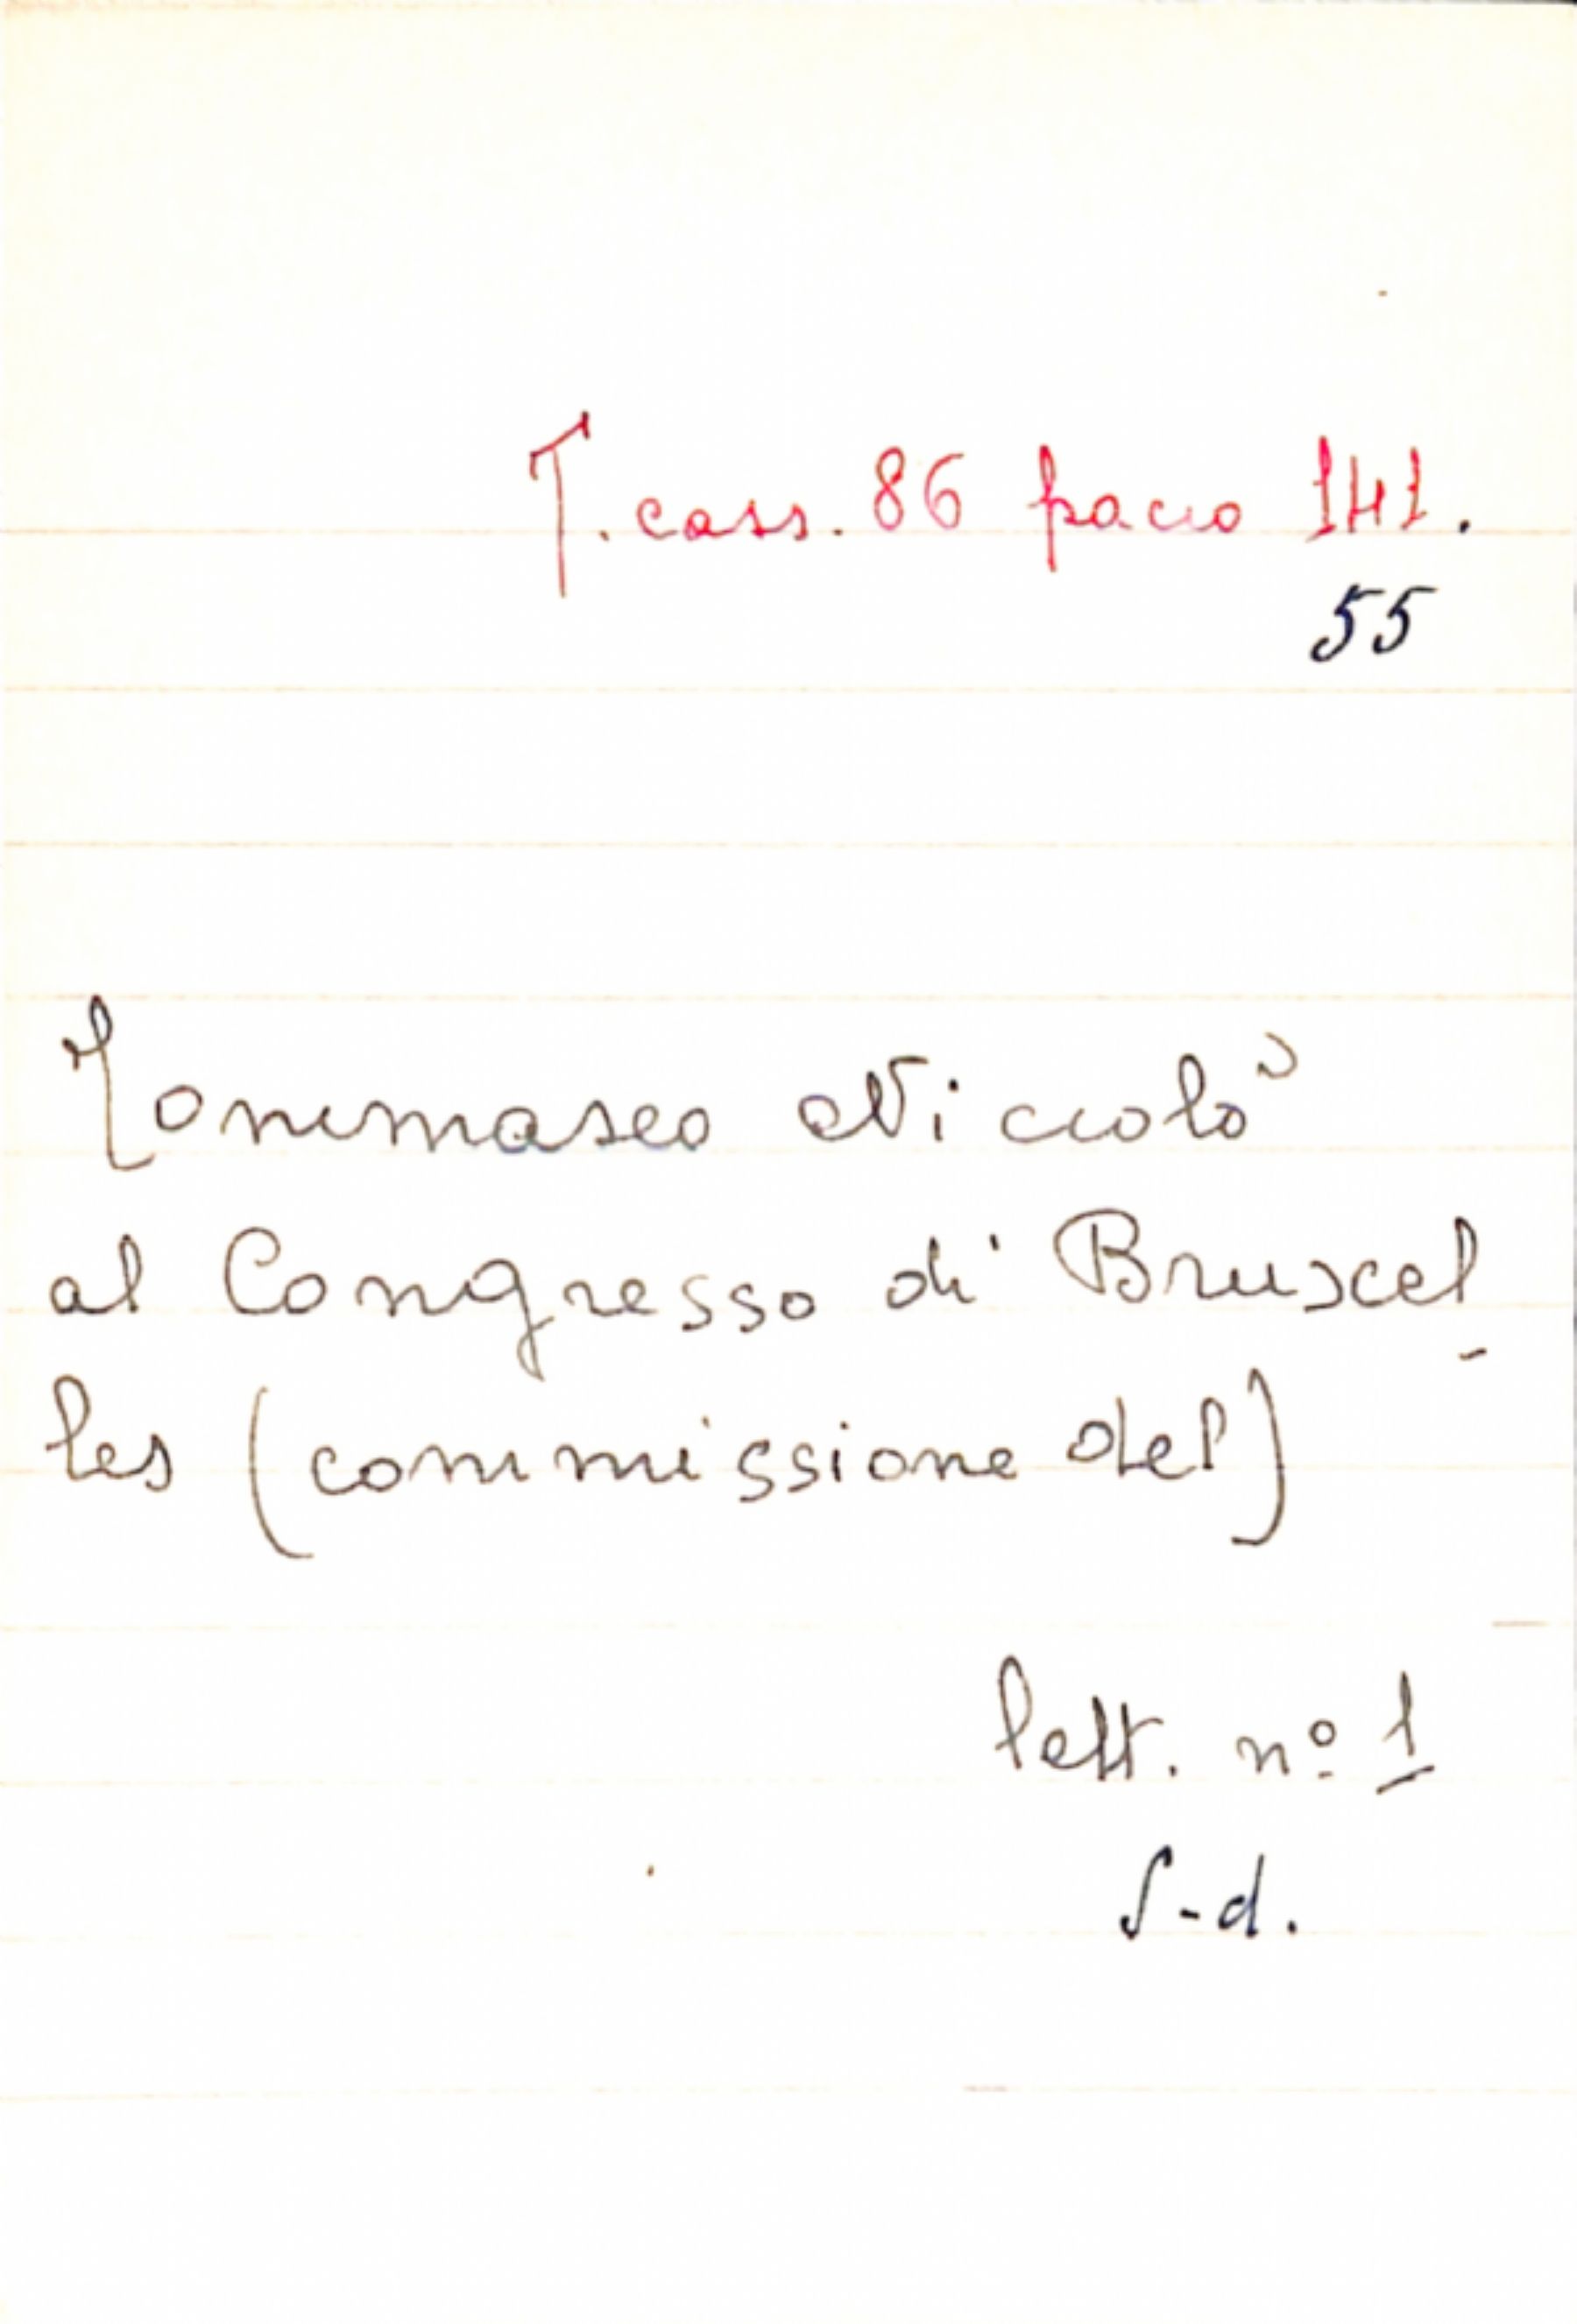 T. cass. 86 pacco 141.
55
Tommaseo Niccolò
al Congresso di Bruxel-
les (commissione del)
lett. nº 1
S.d.